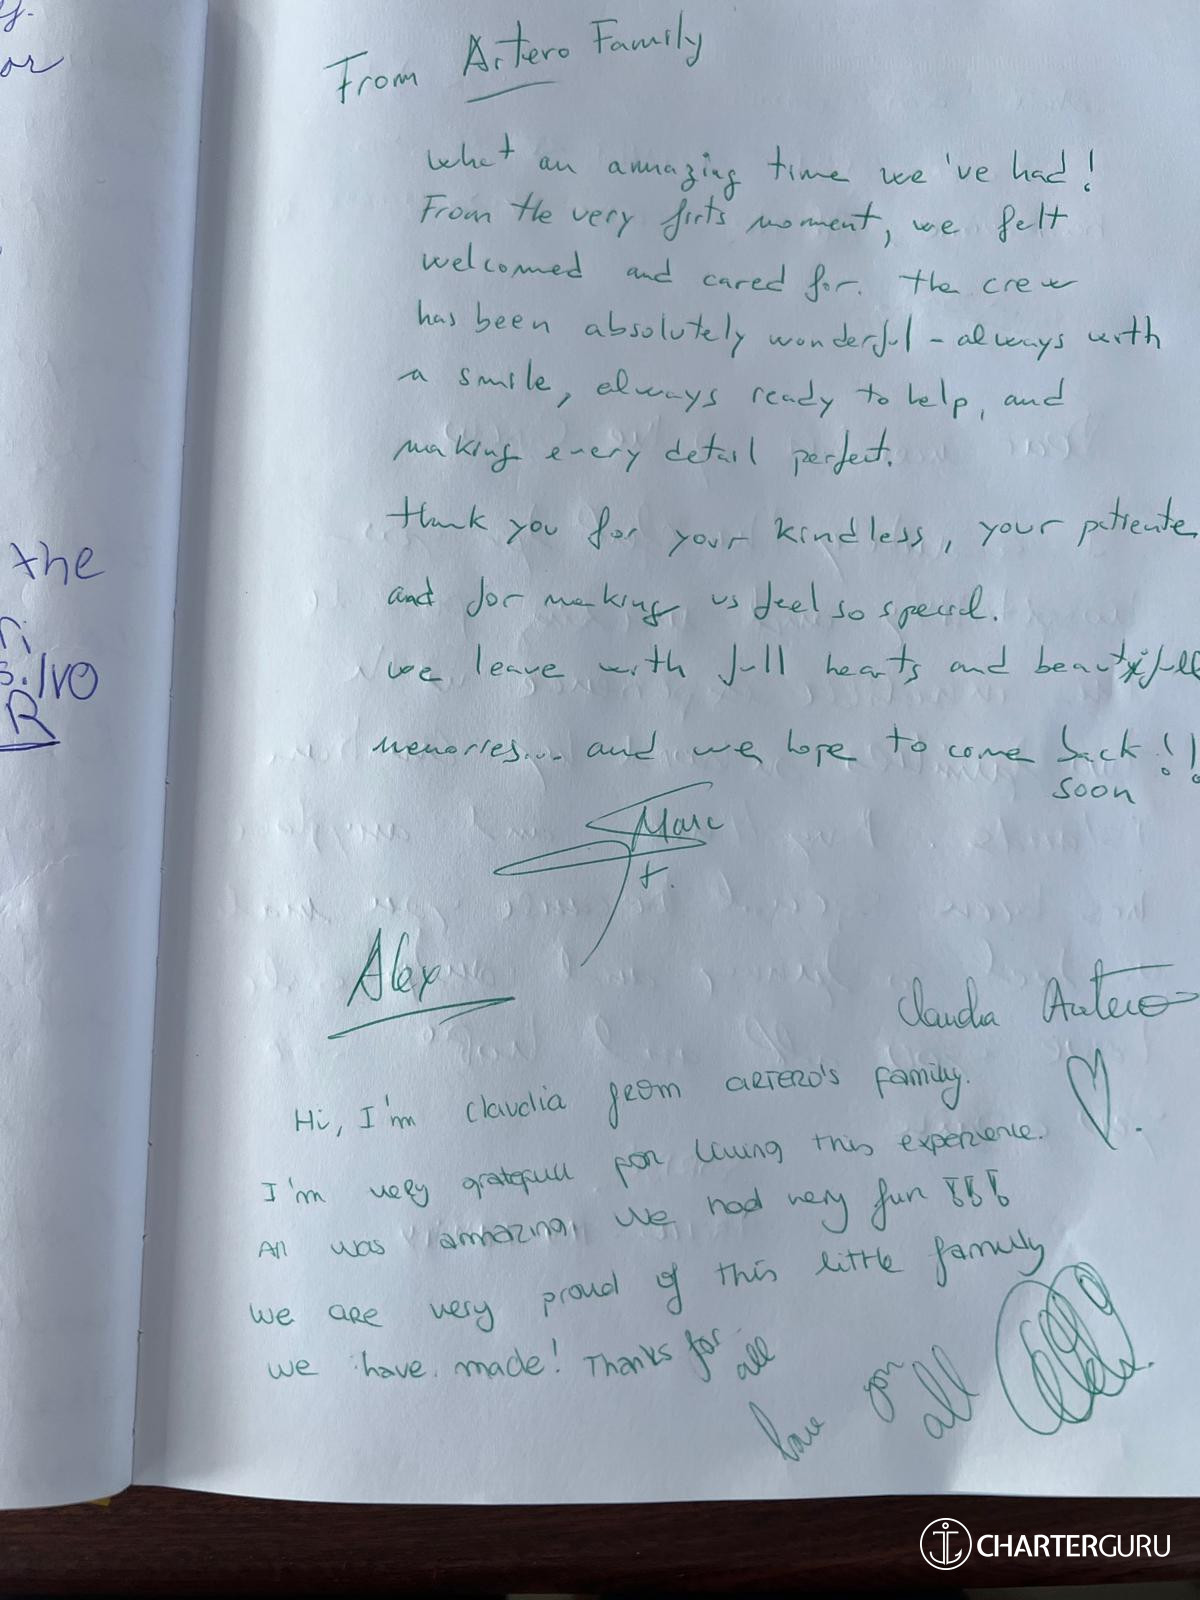 y.
or
the
ri
s.lvo
R
From Artero Family
What an amnazing time we've had!
From the very firts moment, we felt
welcomed and cared for. The crew
has been absolutely wonderful - always with
a smile, always ready to help, and
making every detail perfect.
Thank you for your kindless, your patiente
and for making us feel so special.
We leave with full hearts and beautyfull
memories... and we hope to come back!!
soon
Marc
Alex
Claudia Artero
Hi, I'm Claudia from ARTERO's family.
I'm very gratefull for living this experience.
All was amazing, we had very fun !!!
We are very proud of this little family
we have made! Thanks for all
love you all
CHARTERGURU